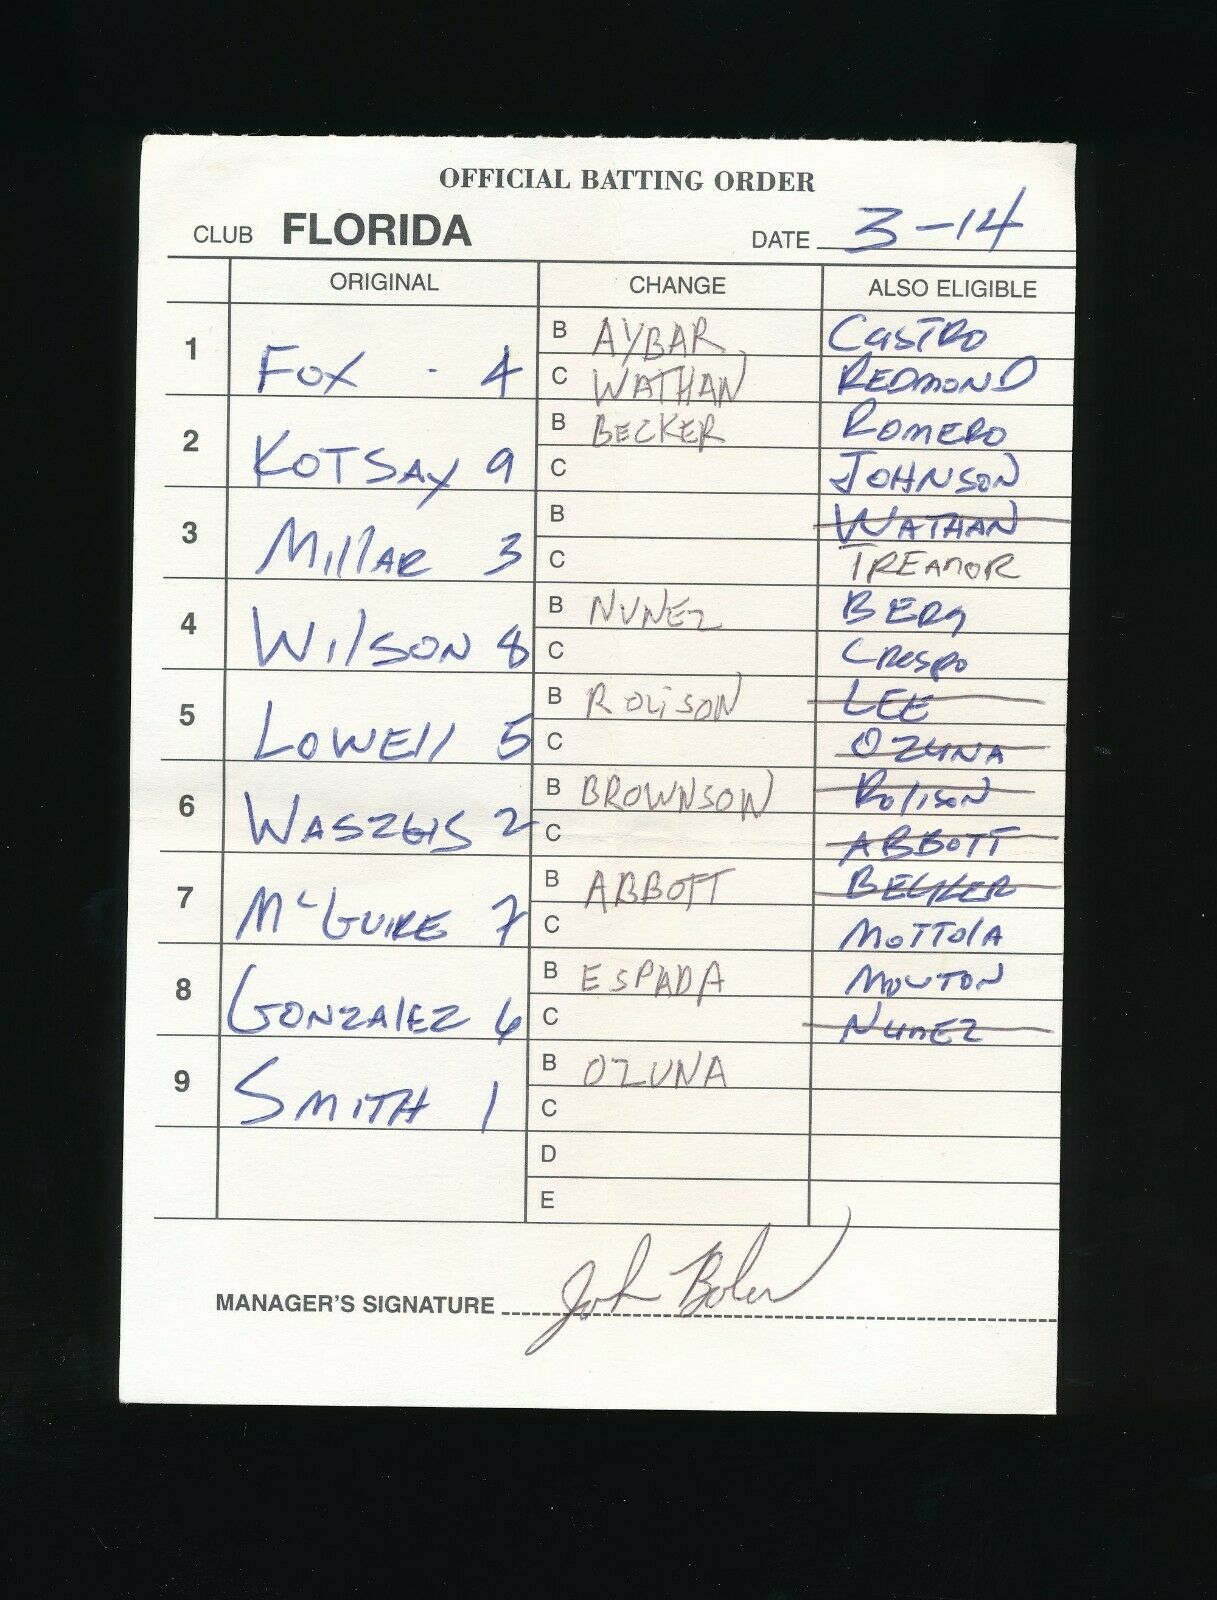 OFFICIAL BATTING ORDER
CLUB FLORIDA DATE 3-14
ORIGINAL CHANGE ALSO ELIGIBLE
1 FOX - 4 B AYBAR CASTRO
C WATHAN REDMOND
2 KOTSAY 9 B BECKER ROMERO
C JOHNSON
3 MillAR 3 B WATHAN
C TREANOR
4 WilSON 8 B NUNEZ BERG
C CRESPO
5 LOWEll 5 B ROLISON LEE
C OZUNA
6 WASZGIS 2 B BROWNSON ROLISON
C ABBOTT
7 McGUIRE 7 B ABBOTT BECKER
C MOTTOLA
8 GONZALEZ 6 B ESPADA MOUTON
C NUNEZ
9 SMITH 1 B OZUNA
C
D
E
MANAGER'S SIGNATURE John Boles